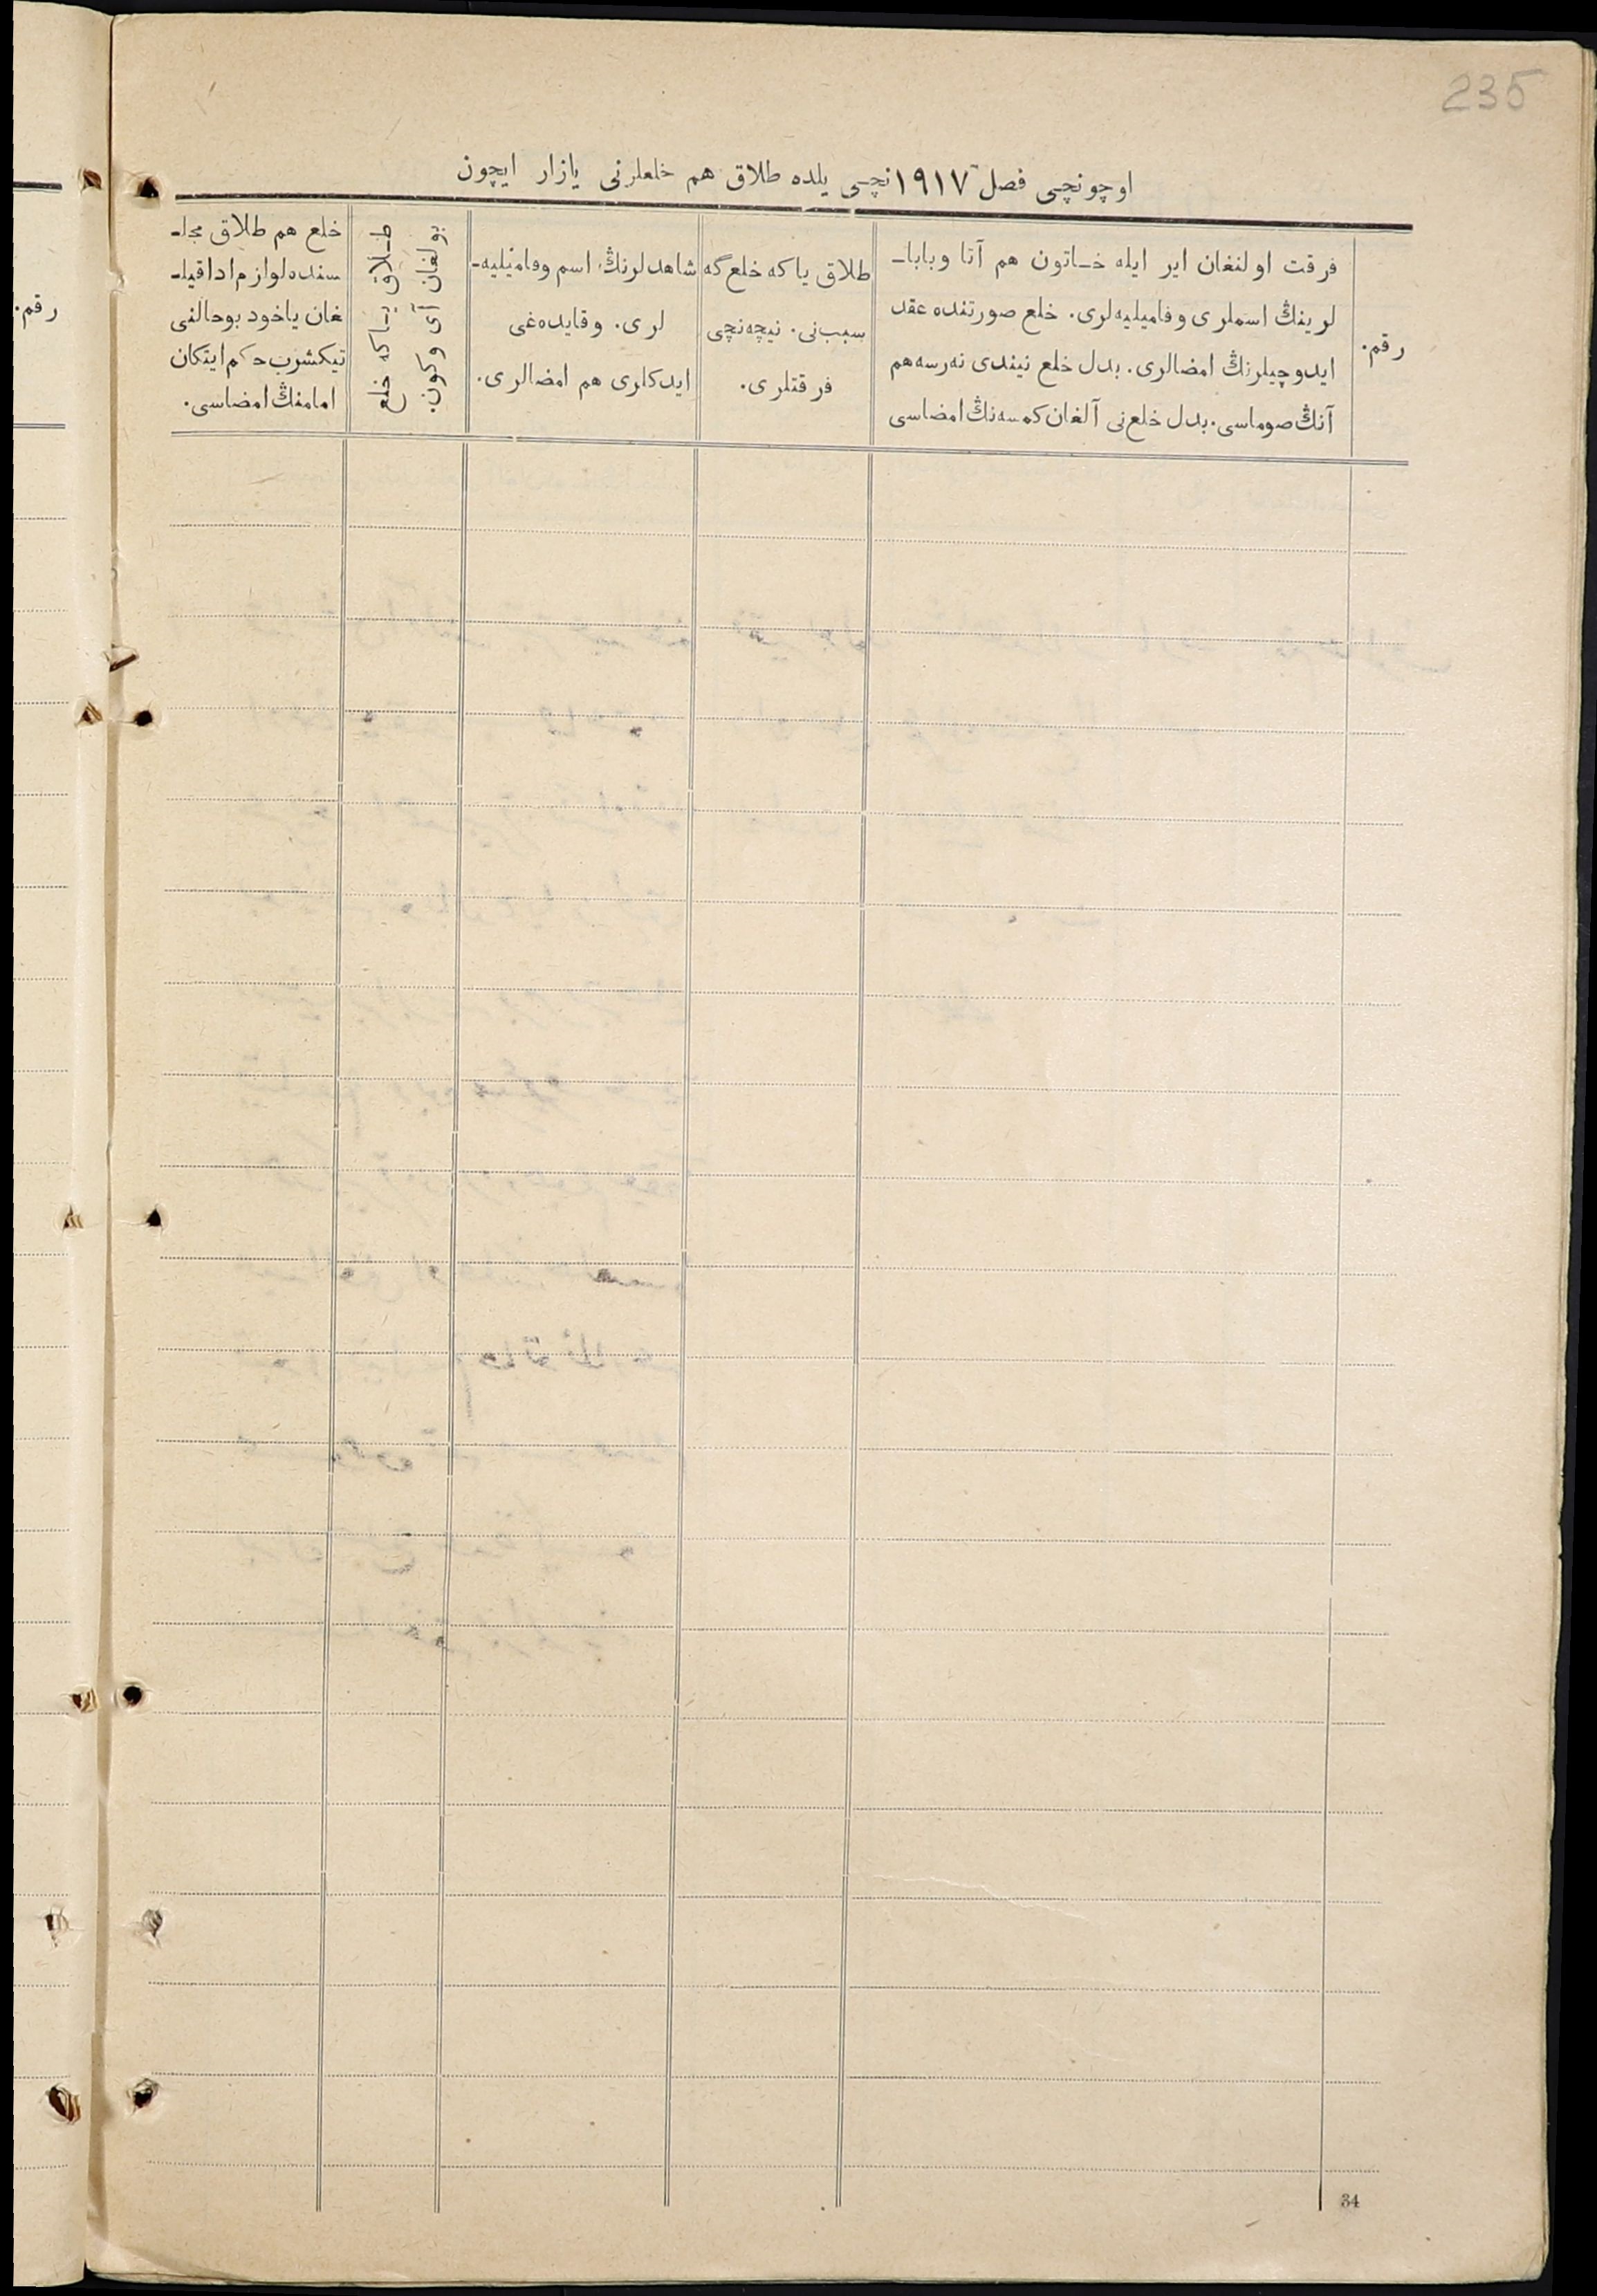 235
اوچونچی فصل ١٩١٧نچی یلده طلاق هم خلعلرنی یازار ایچون
رقم.
فرقت اولنغان ایر ایله خاتون هم آتا وبابا-
لرینڭ اسملری وفامیلیه‌لری. خلع صورتنده عقد
ایدوچیلرنڭ امضالری. بدل خلع نیندی نه‌رسه هم
آنڭ صوماسی. بدل خلع‌نی آلغان کمسه‌نڭ امضاسی
طلاق یاکه خلع گه
سبب‌نی. نیچه‌نچی
فرقتلری.
شاهدلرنڭ اسم وفامیلیه-
لری. وقایده‌غی
ایدکلری هم امضالری.
طلاق یاکه خلع
بولغان آی وکون.
خلع هم طلاق مجلـ
سنده لوازم ادا قیلـ
غان یاخود بوحالنی
تیکشرب حکم ایتکان
امامنڭ امضاسی.
رقم.
34